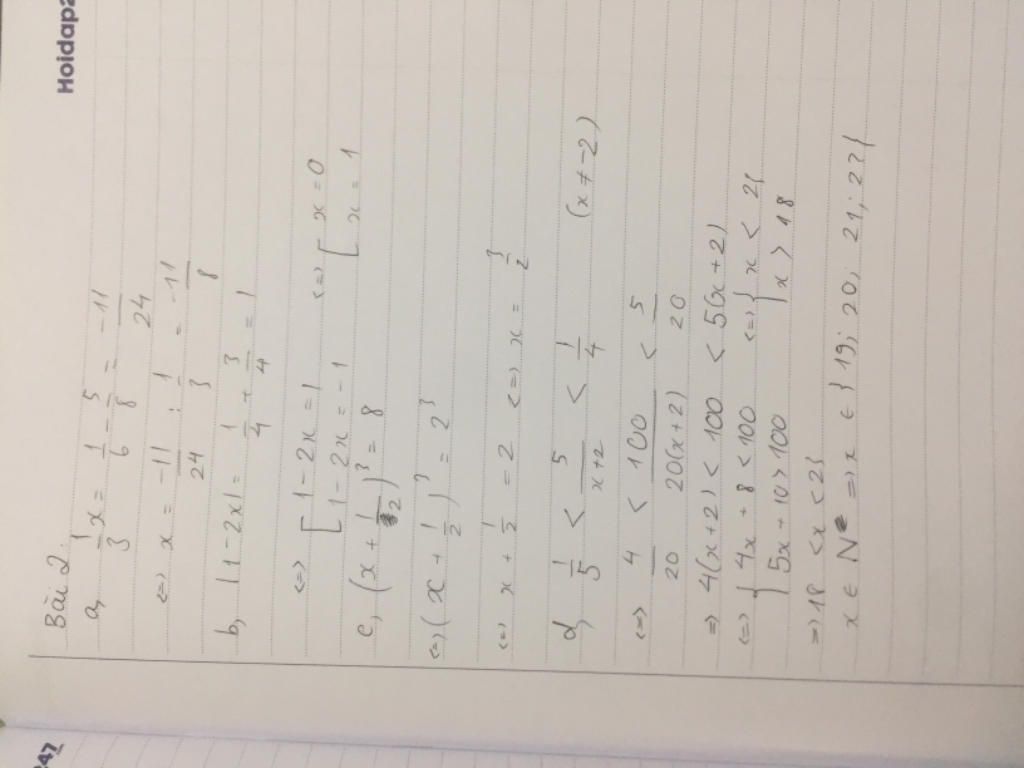 Hoidap2
Bài 2.
a, 1/3 x = 1/6 - 5/8 = -11/24
<=> x = -11/24 : 1/3 = -11/8
b, |1-2x| = 1/4 + 3/4 = 1
<=> [ 1-2x=1 <=> [ x=0
[ 1-2x=-1 [ x=1
c, (x + 1/2)³ = 8
<=> (x + 1/2)³ = 2³
<=> x + 1/2 = 2 <=> x = 3/2
d, 1/5 < 5/x+2 < 1/4 (x≠-2)
<=> 4/20 < 100/20(x+2) < 5/20
=> 4(x+2) < 100 < 5(x+2)
<=> { 4x + 8 < 100 <=> { x < 23
{ 5x + 10 > 100 { x > 18
=> 18 < x < 23
x ∈ N => x ∈ {19; 20; 21; 22}
247